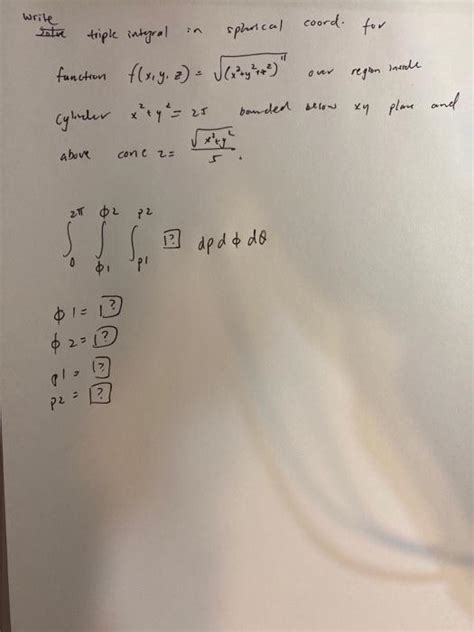 Write
Solve triple integral in spherical coord. for
function f(x, y, z) = √(x²+y²+z²)¹¹ over region inside
cylinder x²+y² = 25 bounded below xy plane and
above cone z = √x²+y² / 5 .
2π ϕ2 p2
∫ ∫ ∫ [?] dp dϕ dθ
0 ϕ1 p1
ϕ1 = [?]
ϕ2 = [?]
p1 = [?]
p2 = [?]